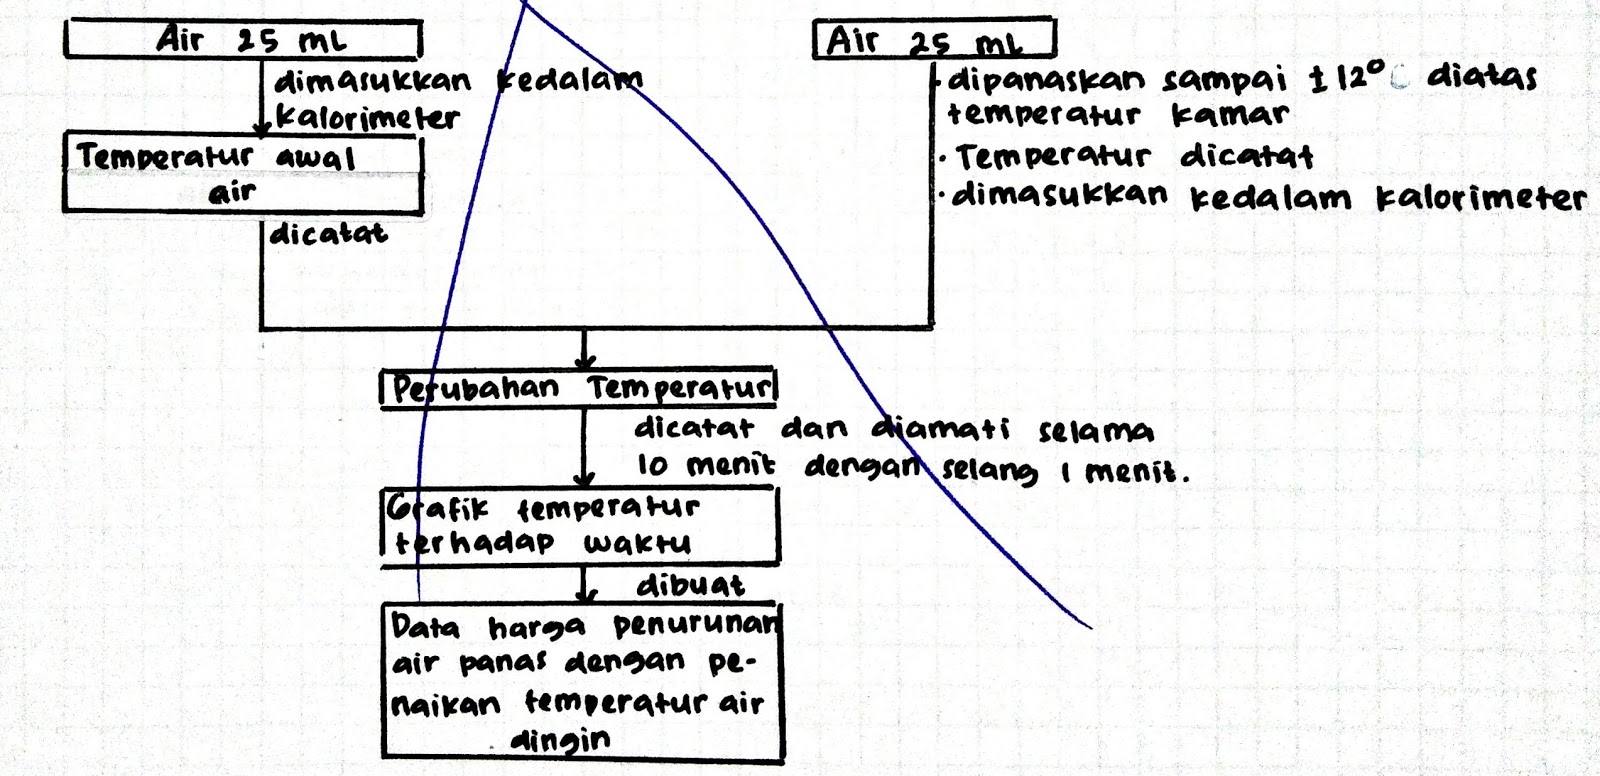 Air 25 mL
dimasukkan kedalam
kalorimeter
Temperatur awal
air
dicatat
Air 25 mL
· dipanaskan sampai ± 12° C diatas
temperatur kamar
· Temperatur dicatat
· dimasukkan kedalam kalorimeter
Perubahan Temperatur
dicatat dan diamati selama
10 menit dengan selang 1 menit.
Grafik temperatur
terhadap waktu
dibuat
Data harga penurunan
air panas dengan pe-
naikan temperatur air
dingin